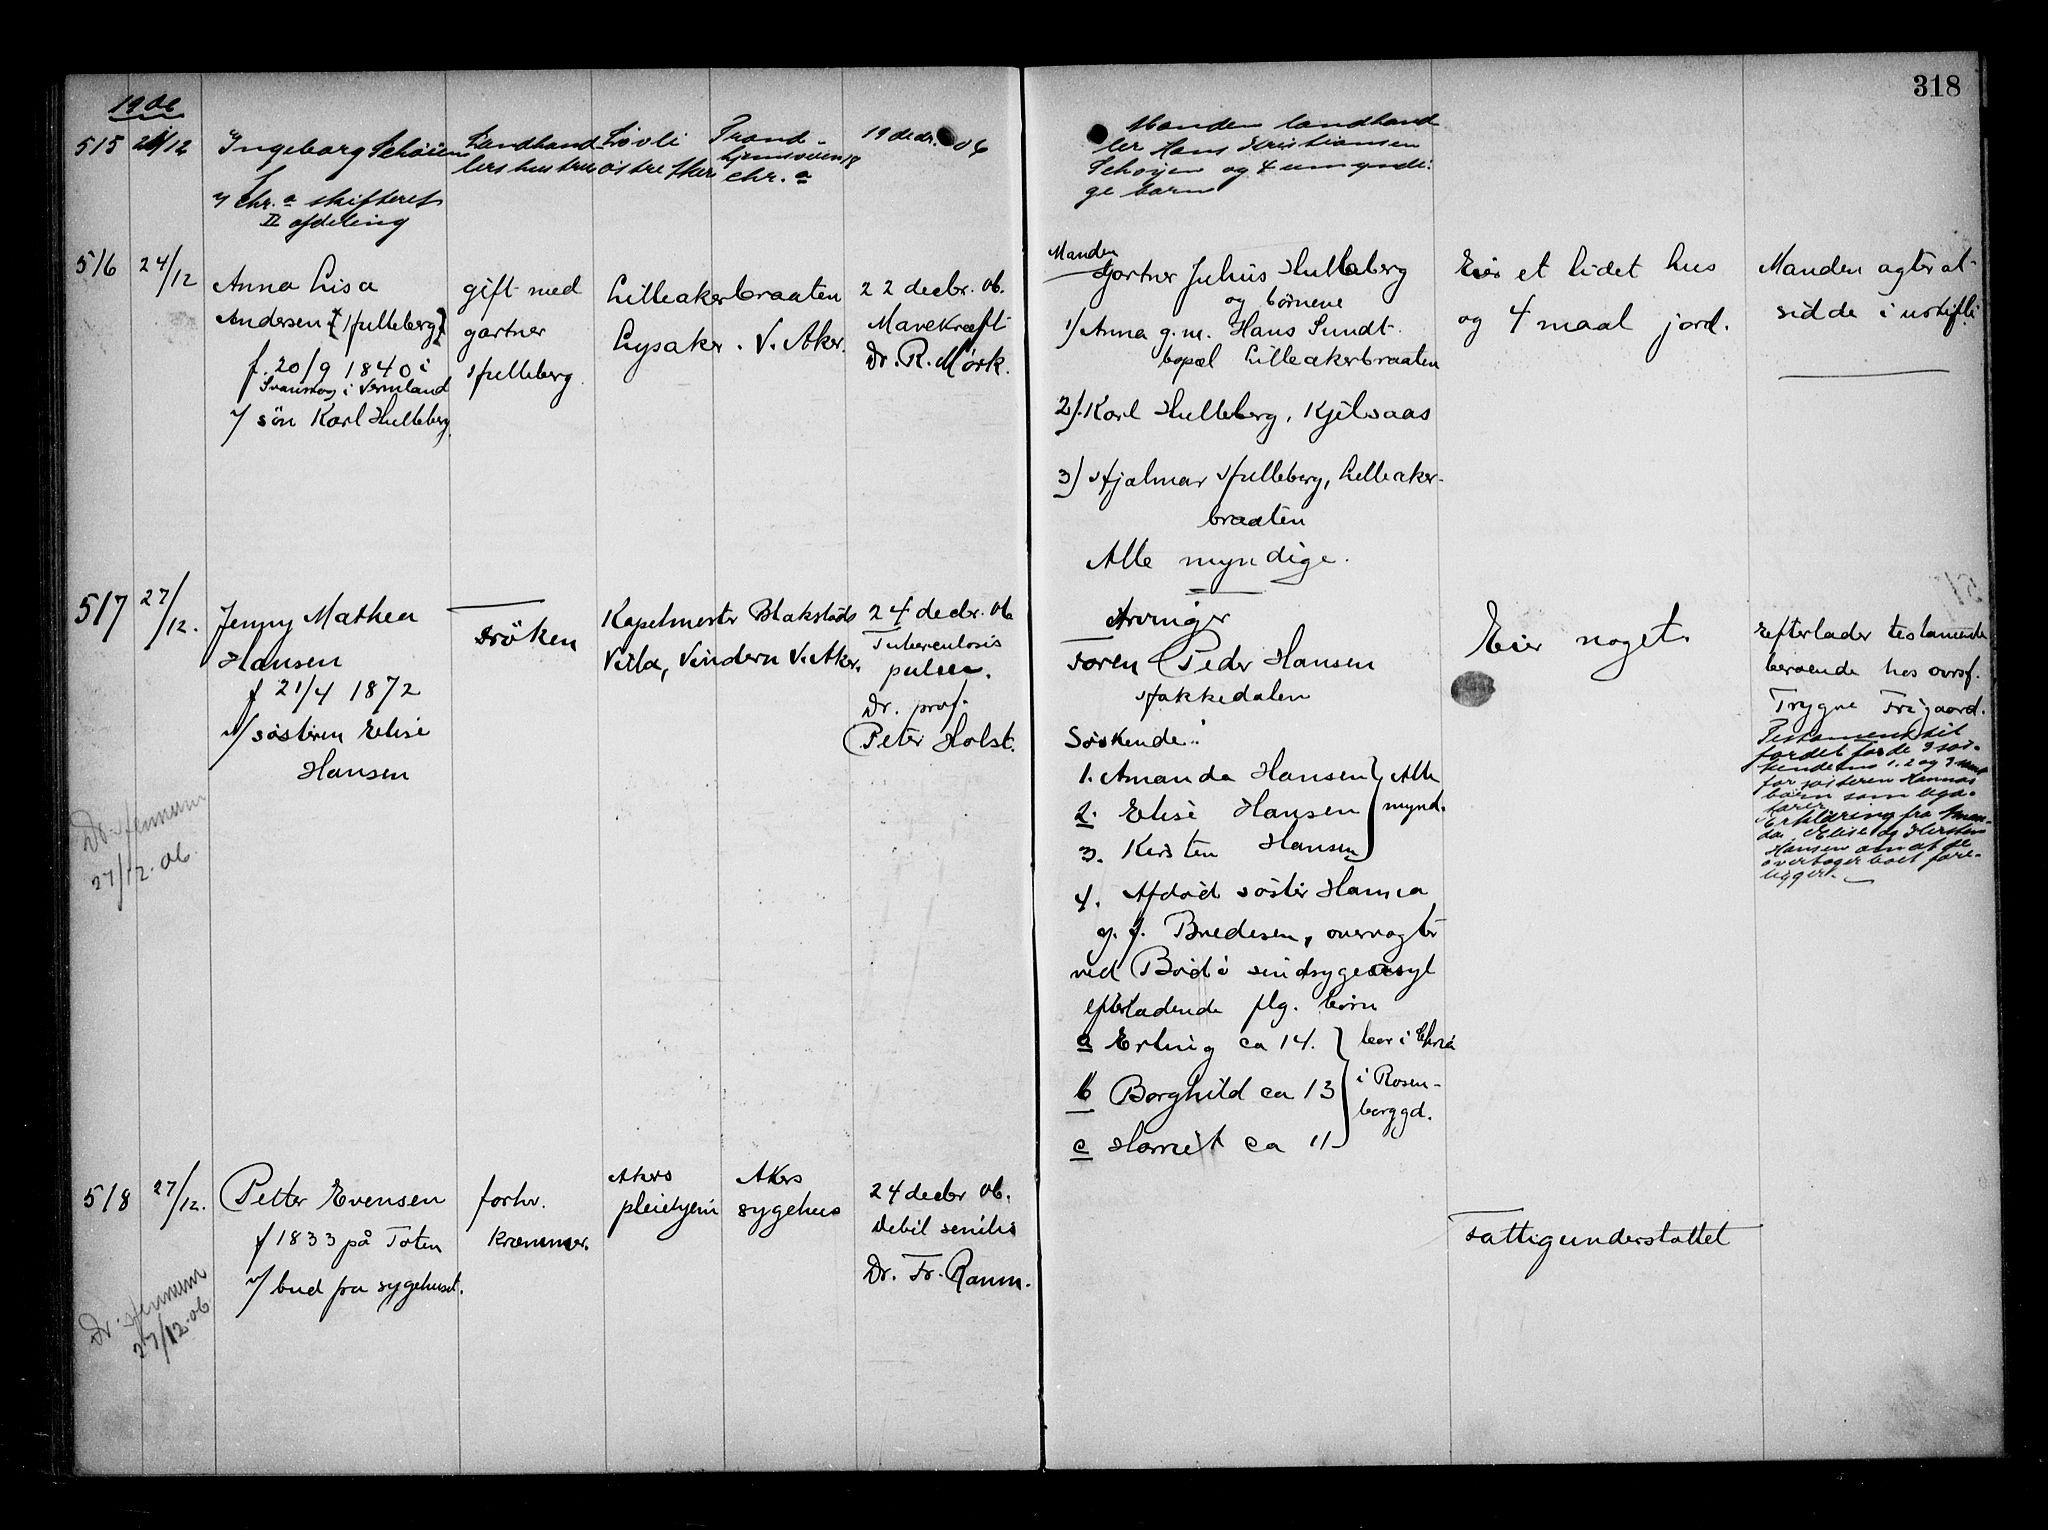 318
1906
515 21/12 Ingeborg Schöien Landhand Lövli Trond- 19 decbr. 06 Manden landhand
lers hustru östre Aker hjemsveien 18 ler Hans Kristiansen
chr. a Schöyen og 4 umyndi-
v/ chr. a skifteret ge barn
II afdeling
516 24/12 Anna Lisa gift med Lilleakerbraaten 22 decbr. 06. Manden Gartner Julius Hulleberg Eier et lidet hus Manden agter at
Andersen (Hulleberg) gartner Lysaker. V. Aker. Mavekræft og börnene og 4 maal jord. sidde i uskifte
f. 20/9 1840 i Hulleberg. Dr. R. Mörk. 1) Anna g.m. Hans Sundt
i Vermland bopæl Lilleakerbraaten
v/ sön Karl Hulleberg. 2). Karl Hulleberg, Kjelsaas
3) Hjalmar Hulleberg, Lilleaker-
braaten
Alle myndige.
517 27/12. Jenny Mathea Fröken Kapelmester Blakstads 24 decbr. 06 Arvinger Eier noget. Efterlader testamente
Hansen Villa, Vindern V. Aker. Tuberculosis Faren Peder Hansen beroende hos ovrsf.
f 21/4 1872 pulm. Hakkedalen Trygve Frigaard.
v/ söstren Elise Dr. prof. Söskende:
Hansen Peter Holst. 1. Amanda Hansen Alle
2. Elise Hansen mynd.
3. Kirsten Hansen
Testament til
fordel for de 3 sös-
kendene 1. 2 og 3 samt
for söstren Hannas
barn som lega-
tarer
Erklæring fra Aman-
da, Elise og Kirsten
Hansen om at de
overtager boet fore-
ligger.
Dr. Hennum
27/12. 06.
4. Afdöd söster Hanna
g. f. Bredesen, overvogter
ved Bodö sindsygeasyl
efterladende flg. börn
a Erling ca 14. bor i Chria
b Borghild ca 13 i Rosen-
borggd.
c Harriet ca 11
518 27/12. Petter Evensen forhv. Akers pleiehjem Akers sygehus 24 decbr 06. Fattigunderstöttet
f 1833 på Toten kræmmer. Debil senilis
v/ bud fra sygehuset. Dr. Fr. Ramm.
Dr. Hennum
27/12. 06